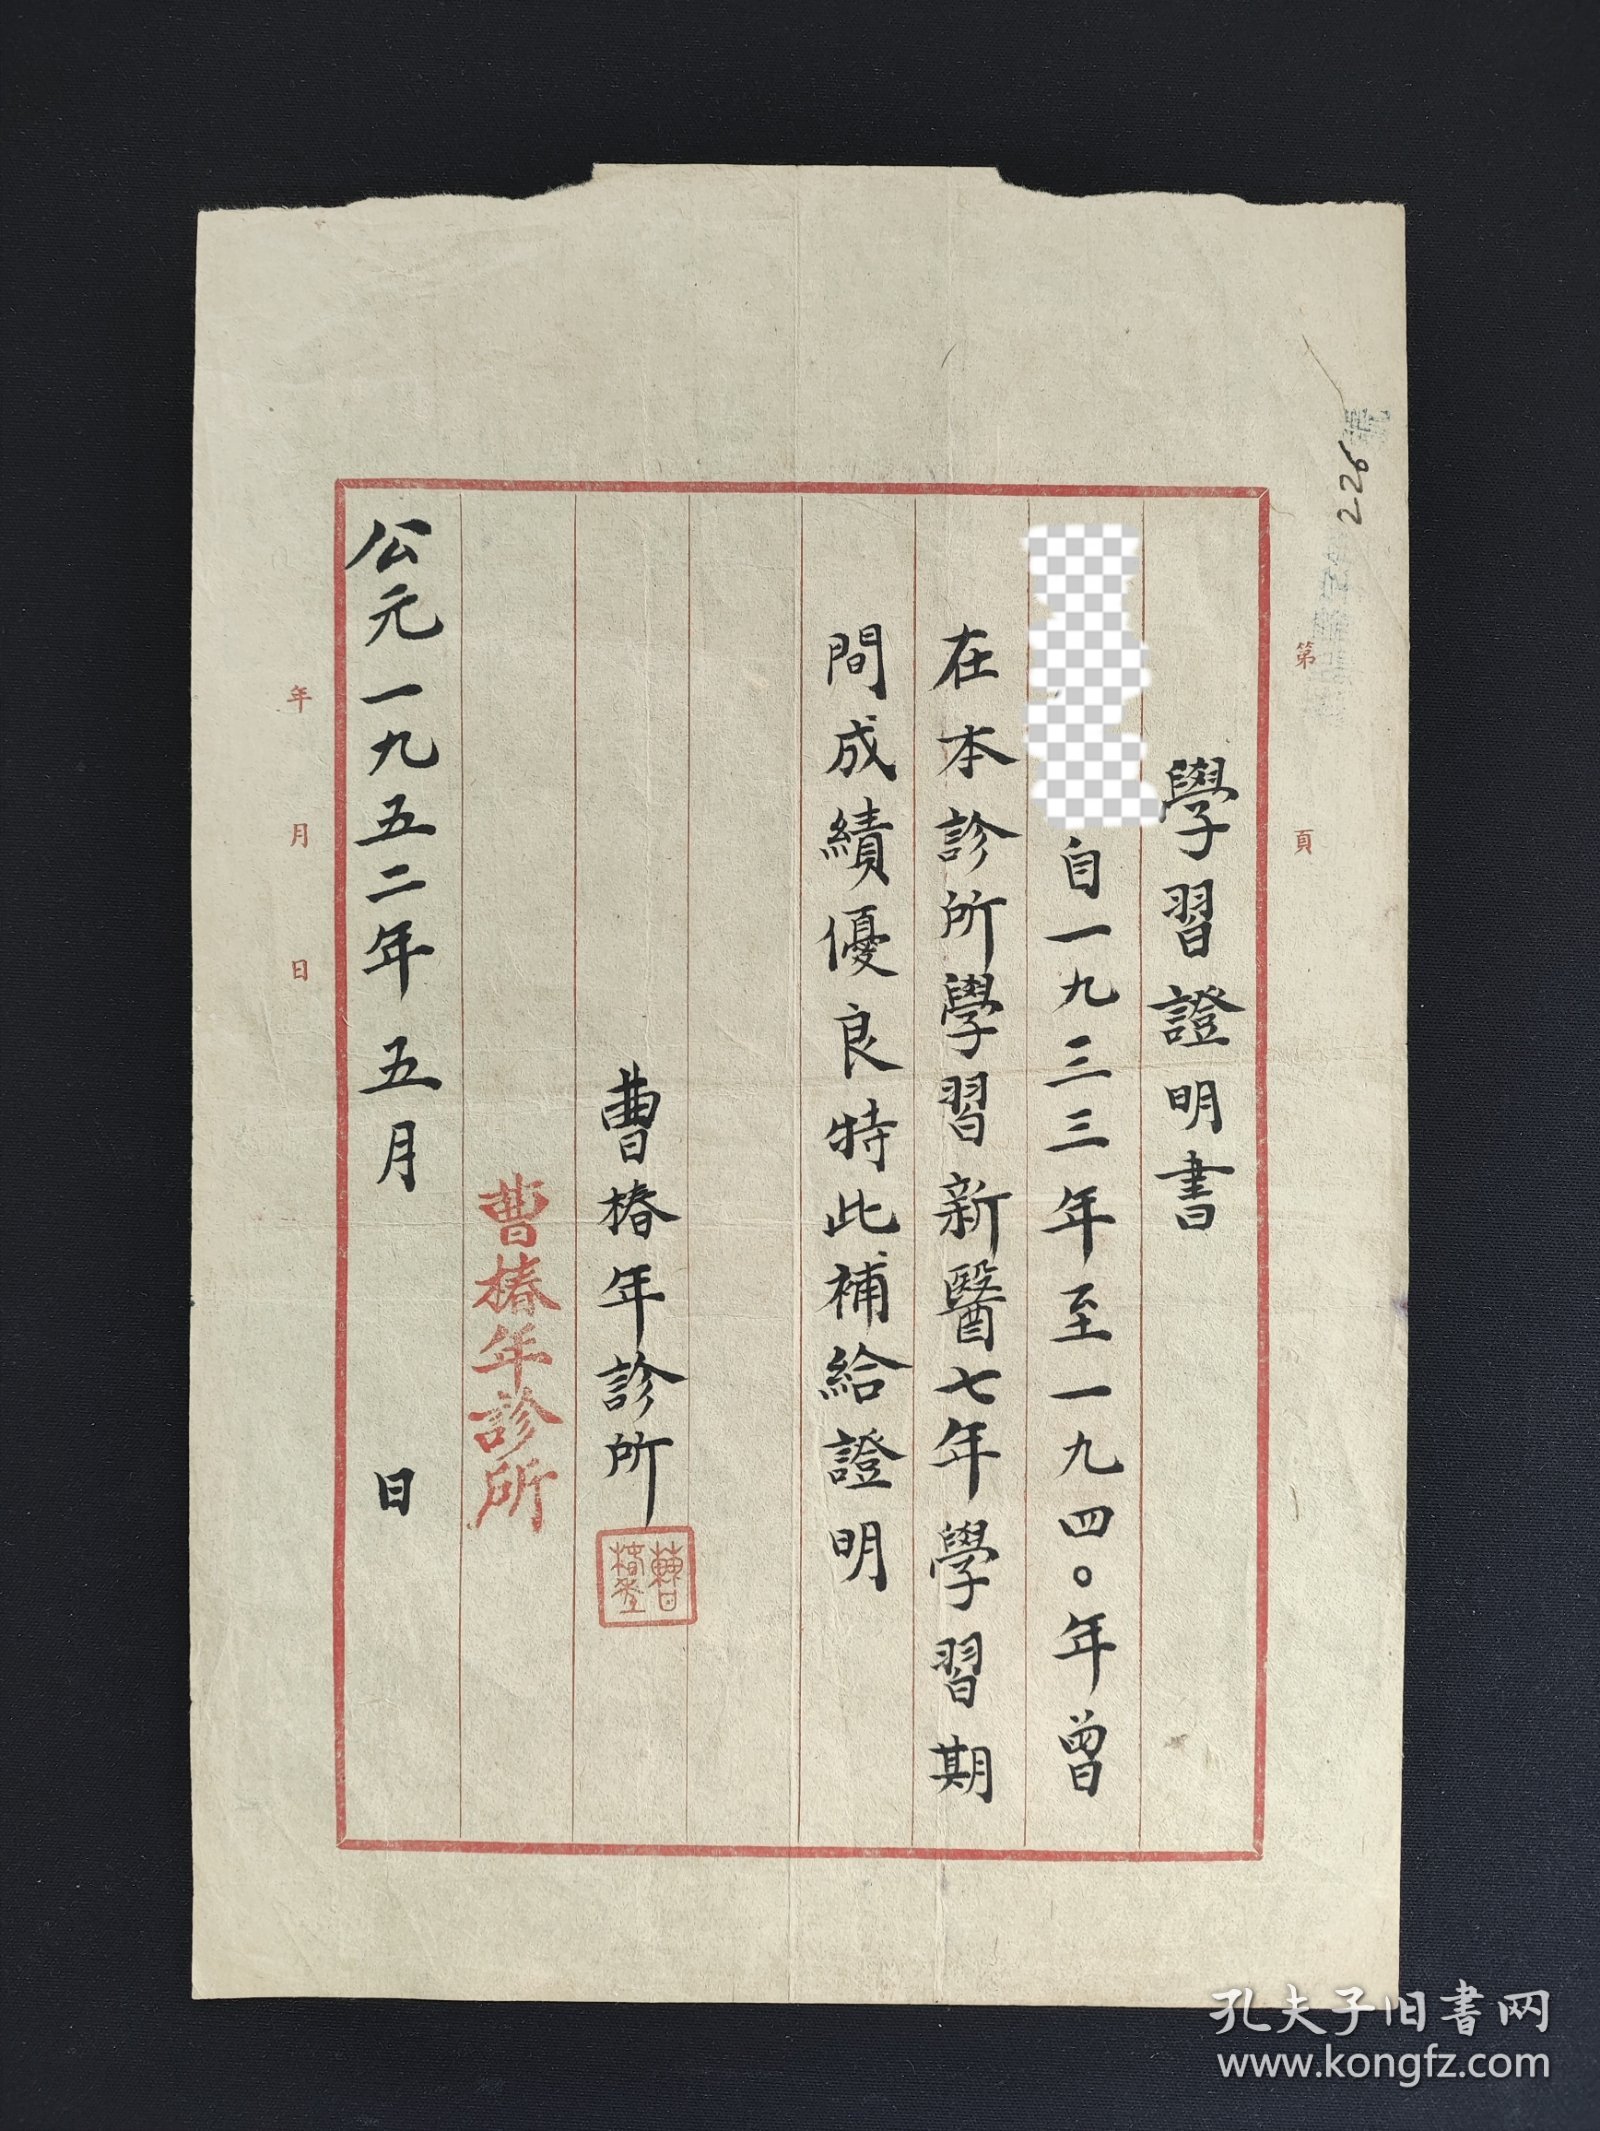 226
號
第
頁
學習證明書
自一九三三年至一九四〇年曾
在本診所學習新醫七年學習期
間成績優良特此補給證明
曹椿年診所
曹椿年診所
公元一九五二年 五月 日
年
月
日
孔夫子旧书网
www.kongfz.com